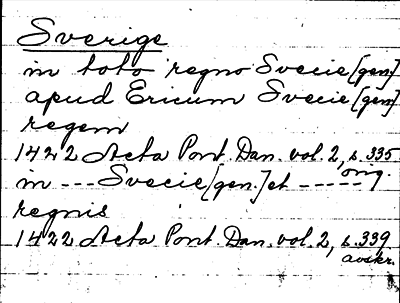 Sverige
in toto regno Svecie [gen]
apud Ericum Svecie [gen]
regem
1422 Acta Pont. Dan. vol. 2, s. 335
orig.
in --- Svecie [gen.] et -----
regnis
1422 Acta Pont. Dan. vol. 2, s. 339
avskr.